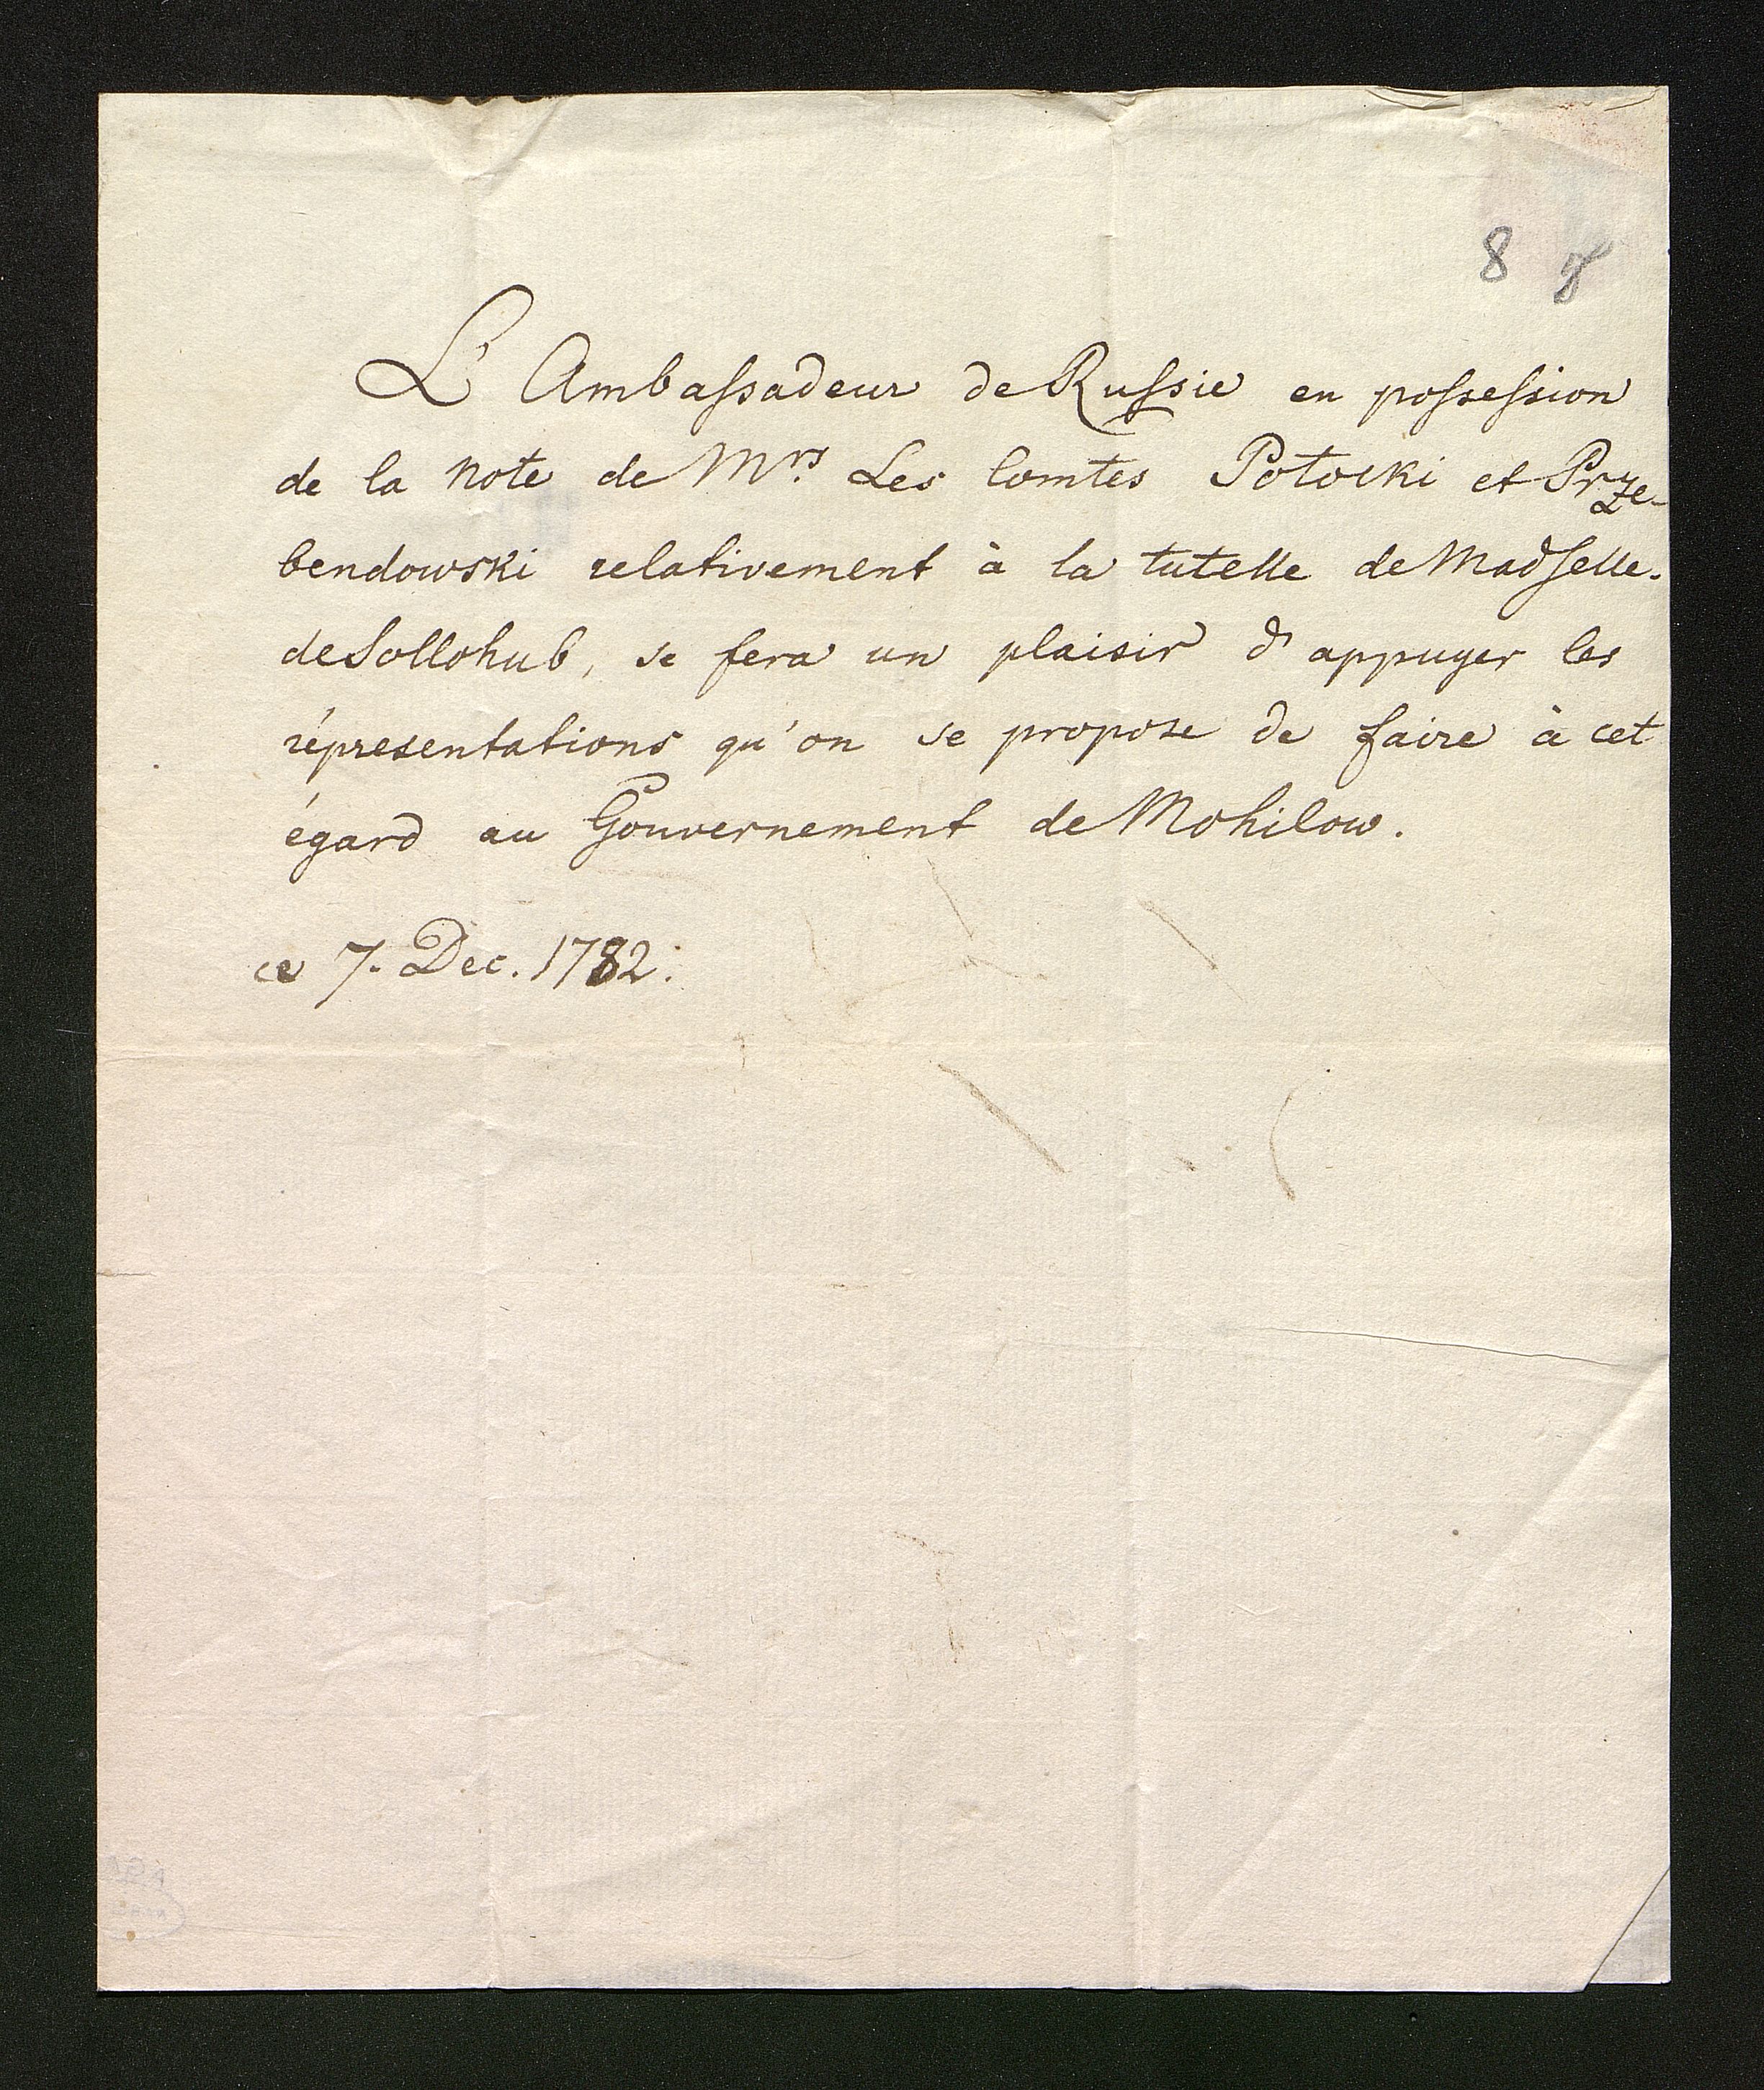 8 8
L'Ambassadeur de Russie en possession
de la note de Mrs. Les Comtes Potocki et Prze-
bendowski relativement à la tutelle de Madselle.
de Sollohub, se fera un plaisir d'appuyer les
réprésentations qu'on se propose de faire à cet
égard au Gouvernement de Mohilow.
ce 7. Dec. 1782.